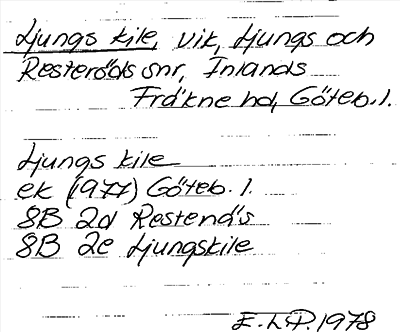 Ljungs kile, vik, Ljungs och
Resteröds snr, Inlands
Fräkne hd, Göteb. l.
Ljungs kile
ek (1977) Göteb. l.
8B 2d Restenäs
8B 2e Ljungskile
E.L.P. 1978